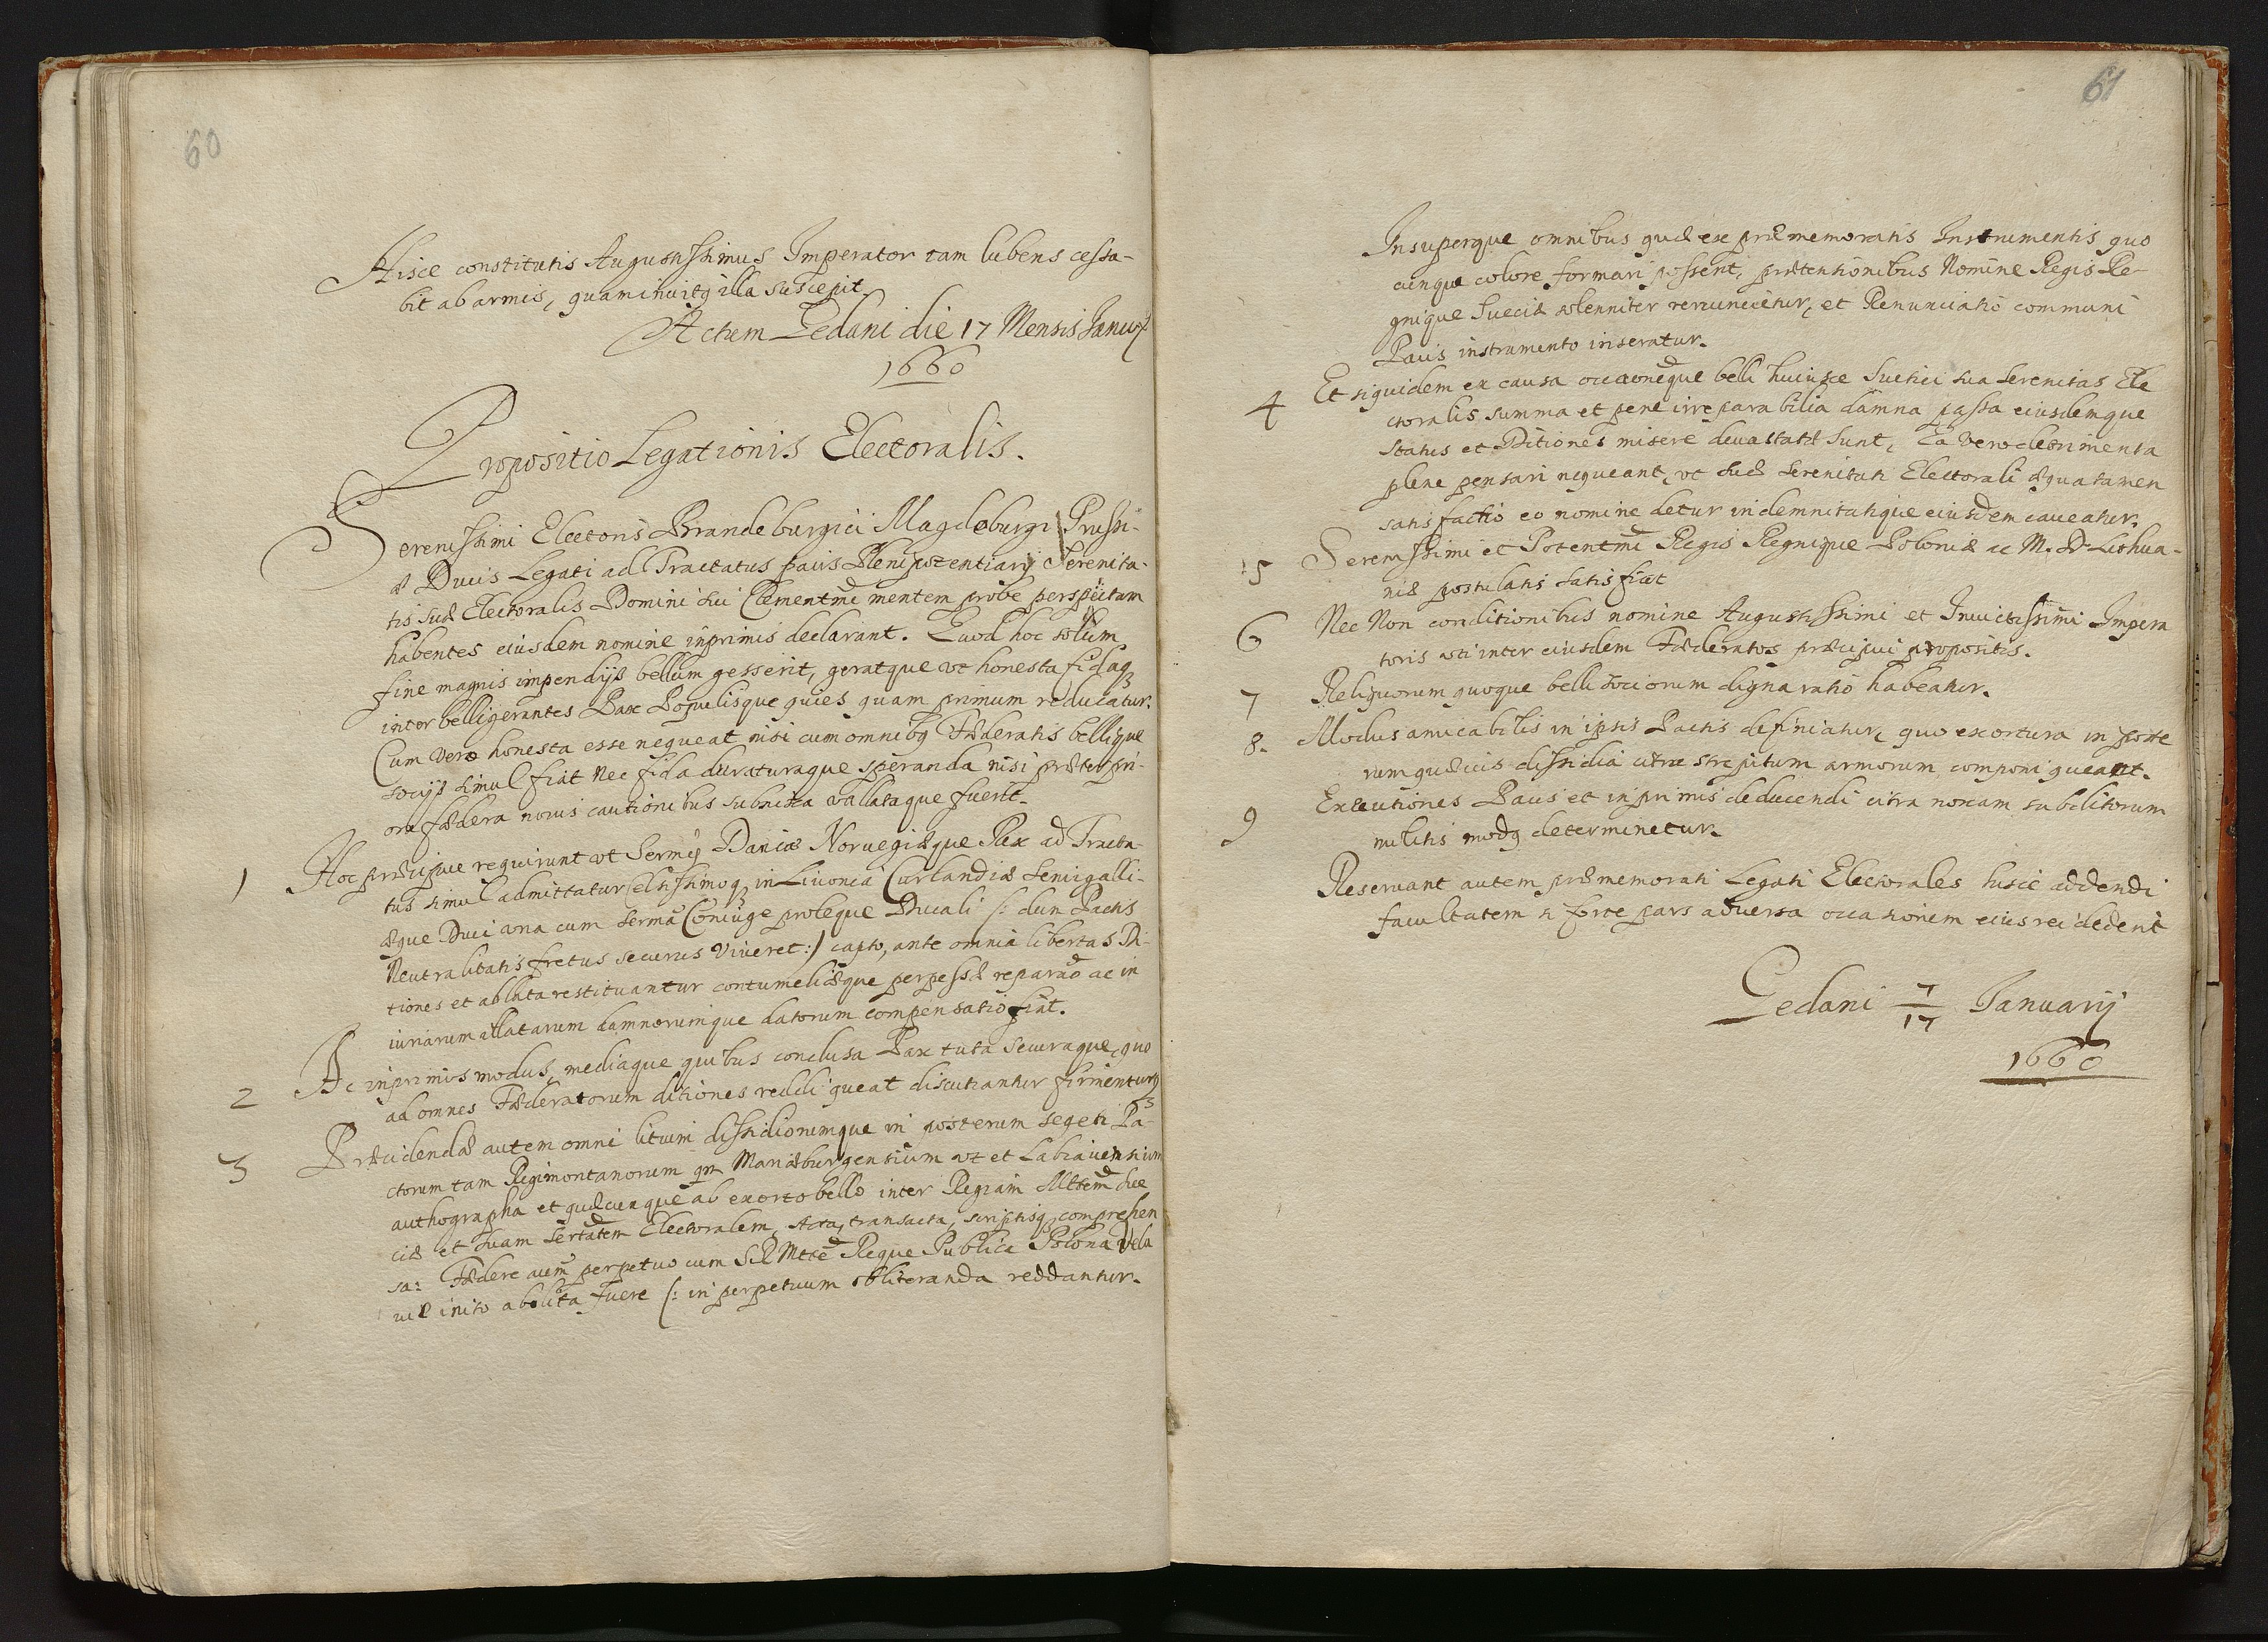 60
Hisce constitutis Augustissimus Imperator tam lubens cessa-
bit ab armis, quam invitq illa suscepit
Actum Gedani die 17 Mensis Januarÿ
1660
Propositio Legationis Electoralis.
Serenissimi Electoris Brandeburgici Magdeburgi Prussi-
æ Ducis Legati ad Tractatus pacis Plenipotentiarÿ Serenita-
tis Suæ Electoralis Domini sui Clementmi mentem probe perspectam
habentes eiusdem nomine inprimis declarant. Quod hoc solùm
fine magnis impendÿs bellum gesserit, geratque vt honesta fidaq3
inter belligerantes Pax Populisque quies quam primum reducatur.
Cum vero honesta esse nequeat nisi cum omnibq Fœderatis bellique
socÿs simul fiat nec fida duraturaque speranda nisi præter pri-
ora fœdera novis cautionibus subnixa vallataque fuerit.
1 Hoc præcipue requirunt vt Sermq Daniæ Norvegiæque Rex ad Tracta-
tus simul admittatur Celsissimoq3 in Livonia Curlandiæ Semigalli-
æque Duci una cum Serma Coniuge proleque Ducali /: dum Pactis
Neutralitatis fretus securus viveret :/ capto, ante omnia libertas Di-
tiones et ablata restituantur contumeliæque perpessæ reparao ac in
iuriarum illatarum damnorumque datorum compensatio fiat.
2 Ac inprimis modus, mediaque quibus conclusa Pax tuta securaque, quo
ad omnes Fœderatorum ditiones reddi queat discutiantur firmenturq3
3 Præcidendæ autem omni litium dissidiorumque in posterum segeti Pa-
ctorum tam Regimontanorum qm Mariæburgensium vt et Labiavensium
authographa et quæcunque ab exorto bello inter Regiam Mttem Sue
ciæ et suam Sertatem Electoralem, Acta, transacta, scriptisq3 comprehen
sa: Fœdere aum perpetuo cum S.R. Mtte Reque Publica Polona Vela
viæ inito abolita fuere /: in perpetuum obliteranda reddantur.
61
Insuperque omnibus quæ ex præmemoratis Instrumentis quo
cunque colore formari possent, prætensionibus Nomine Regis Re-
gnique Sueciæ solenniter renuncietur, et Renunciatio communi
Pacis instrumento inseratur.
4 Et siquidem ex causa occaoneque belli huiusce Suetici sua Serenitas Ele
ctoralis summa et pene irreparabilia damna passa eiusdemque
Status et Ditiones misere devastatæ sunt, Ea vero detrimenta
plene pensari nequeant, vt suæ Serenitati Electorali æqua tamen
satisfactio eo nomine detur indemnitatique eiusdem caveatur.
5 Serenissimi et Potentmi Regis Regnique Poloniæ ac M. D. Lithua-
niæ postulatis satisfiat
6 Nec Non conditionibus nomine Augustissimi et Invictissimi Impera
toris vti inter eiusdem Fœderatos præcipui propositis.
7 Reliquorum quoque belli sociorum digna ratio habeatur.
8. Modus amicabilis in ipsis Pactis definiatur, quo exortura in poste
rum quævis dissidia citra strepitum armorum componi queant.
9 Executiones Pacis et inprimis deducendi citra noxam subditorum
militis modq determinetur.
Reservant autem præmemorati Legati Electorales hisce addendi
facultatem si forte pars adversa occasionem eius rei dederit
Gedani 7/17 Januarÿ
1660